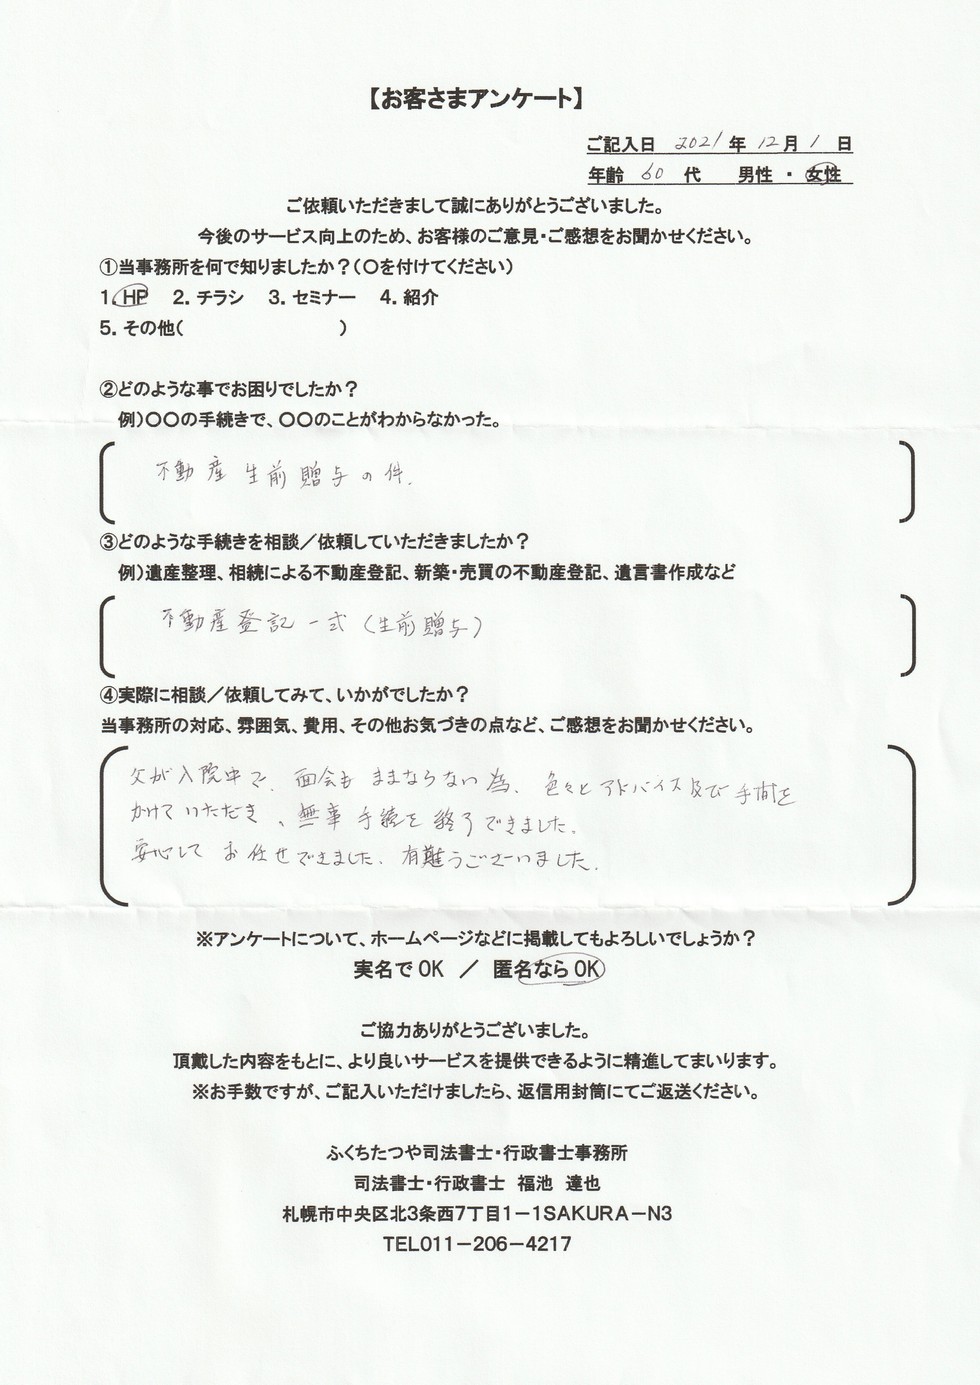 【お客さまアンケート】
ご記入日 2021 年 12 月 1 日
年齢 60 代 男性 ・ 女性
ご依頼いただきまして誠にありがとうございました。
今後のサービス向上のため、お客様のご意見・ご感想をお聞かせください。
①当事務所を何で知りましたか？（〇を付けてください）
1. HP 2. チラシ 3. セミナー 4. 紹介
5. その他( )
②どのような事でお困りでしたか？
例）〇〇の手続きで、〇〇のことがわからなかった。
不動産生前贈与の件.
③どのような手続きを相談／依頼していただきましたか？
例）遺産整理、相続による不動産登記、新築・売買の不動産登記、遺言書作成など
不動産登記一式（生前贈与）
④実際に相談／依頼してみて、いかがでしたか？
当事務所の対応、雰囲気、費用、その他お気づきの点など、ご感想をお聞かせください。
父が入院中で、面会もままならない為、色々とアドバイス及び手間を
かけていただき、無事手続を終了できました.
安心してお任せできました. 有難うございました.
※アンケートについて、ホームページなどに掲載してもよろしいでしょうか？
実名でOK ／ 匿名ならOK
ご協力ありがとうございました。
頂戴した内容をもとに、より良いサービスを提供できるように精進してまいります。
※お手数ですが、ご記入いただけましたら、返信用封筒にてご返送ください。
ふくちたつや司法書士・行政書士事務所
司法書士・行政書士 福池 達也
札幌市中央区北3条西7丁目1－1SAKURA－N3
TEL011－206－4217